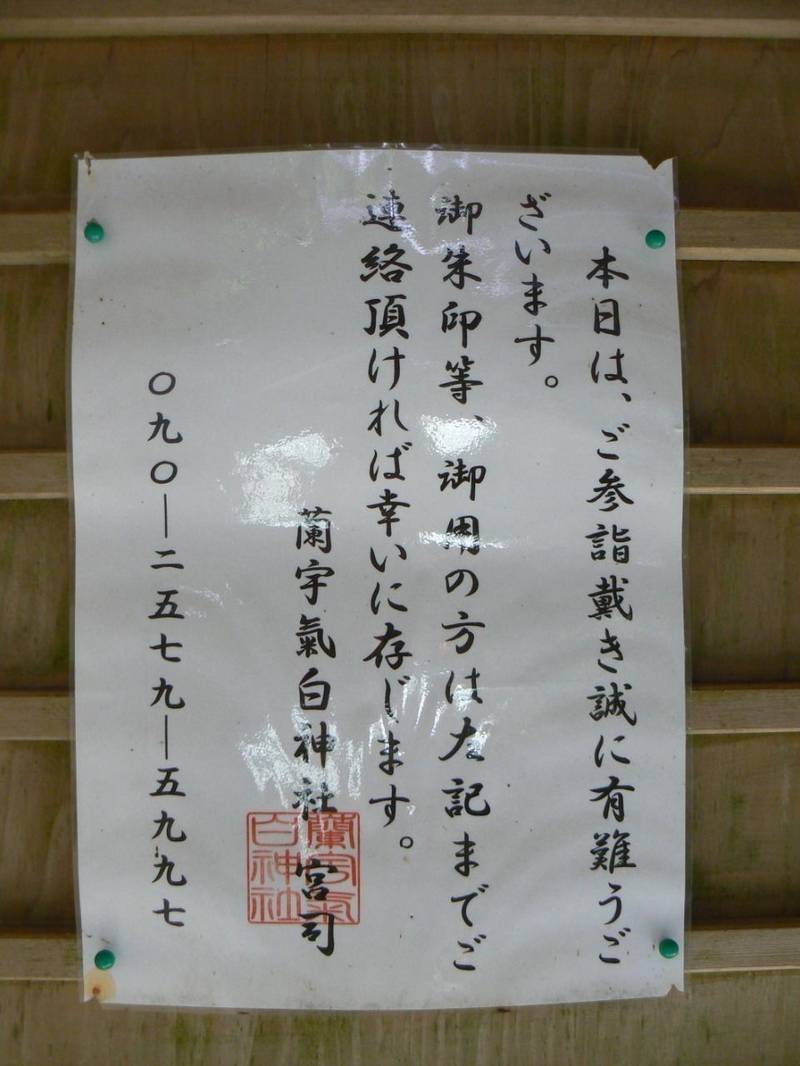 本日は、ご参詣戴き誠に有難うご
ざいます。
御朱印等、御用の方は左記までご
連絡頂ければ幸いに存じます。
蘭宇氣白神社 宮司
蘭宇氣
白神社
〇九〇―二五七九―五九九七